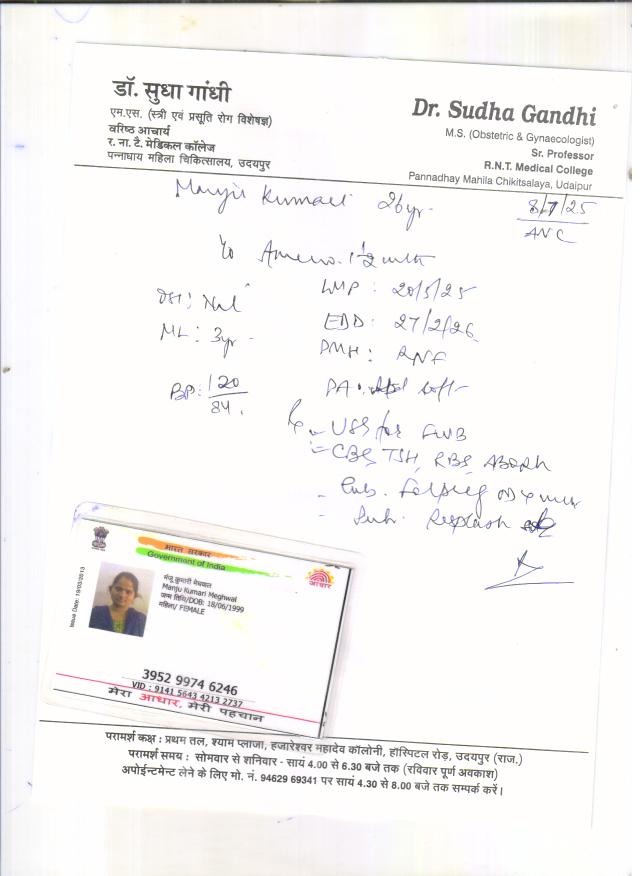 डॉ. सुधा गांधी
एम.एस. (स्त्री एवं प्रसूति रोग विशेषज्ञ)
वरिष्ठ आचार्य
र. ना. टै. मेडिकल कॉलेज
पन्नाधाय महिला चिकित्सालय, उदयपुर
Dr. Sudha Gandhi
M.S. (Obstetric & Gynaecologist)
Sr. Professor
R.N.T. Medical College
Pannadhay Mahila Chikitsalaya, Udaipur
Kumari 26yr.
8/7/25
ANC
LMP : 20/5/25
EDD : 27/2/26
ML : 3yr
BP : 120
84
PA : soft
USG for FWB
CBC, TSH, RBS, ABORh
भारत सरकार
Government of India
आधार
Issue Date: 19/03/2013
मंजू कुमारी मेघवाल
Manju Kumari Meghwal
जन्म तिथि/DOB: 18/06/1999
महिला/ FEMALE
3952 9974 6246
VID : 9141 5643 4213 2737
मेरा आधार, मेरी पहचान
परामर्श कक्ष : प्रथम तल, श्याम प्लाजा, हजारेश्वर महादेव कॉलोनी, हॉस्पिटल रोड़, उदयपुर (राज.)
परामर्श समय : सोमवार से शनिवार - सायं 4.00 से 6.30 बजे तक (रविवार पूर्ण अवकाश)
अपोईन्टमेन्ट लेने के लिए मो. नं. 94629 69341 पर सायं 4.30 से 8.00 बजे तक सम्पर्क करें।